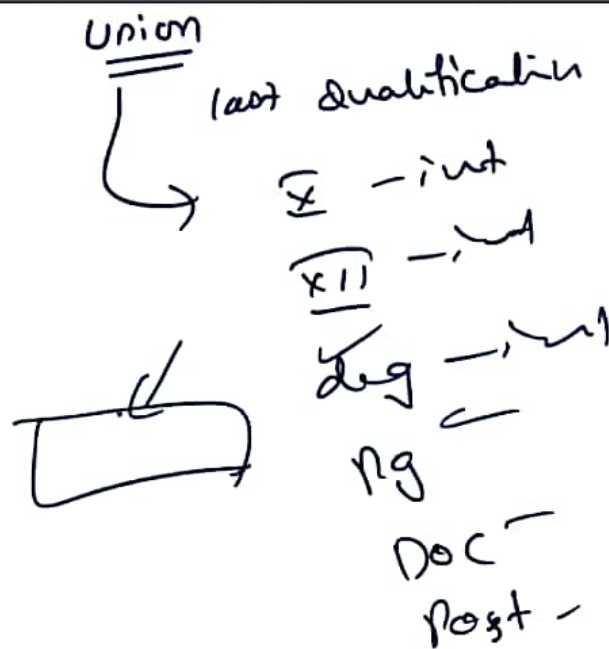 Union
last Qualification
X - int
XII - int
deg - int
pg -
DOC -
Post -